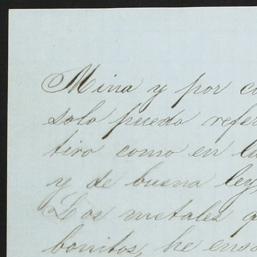 Mina y por co
solo puedo refer
tiro como en la
y de buena ley
Los metales q
bonitos, he ensa